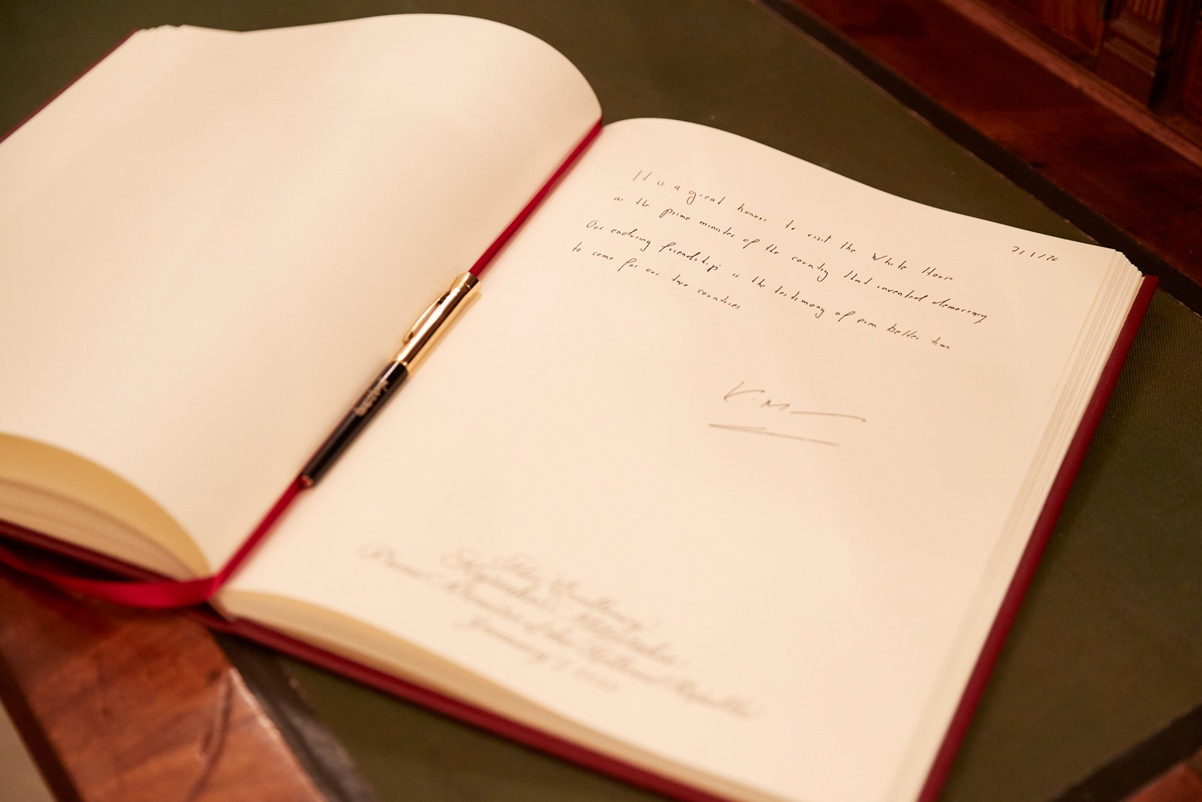 It is a great honour to visit the White House
7/1/20
as the prime minister of the country that invented democracy
Our enduring friendship is the testimony of even better time
to come for our two countries.
K. M
His Excellency
Kyriakos Mitsotakis
Prime Minister of the Hellenic Republic
January 7, 2020